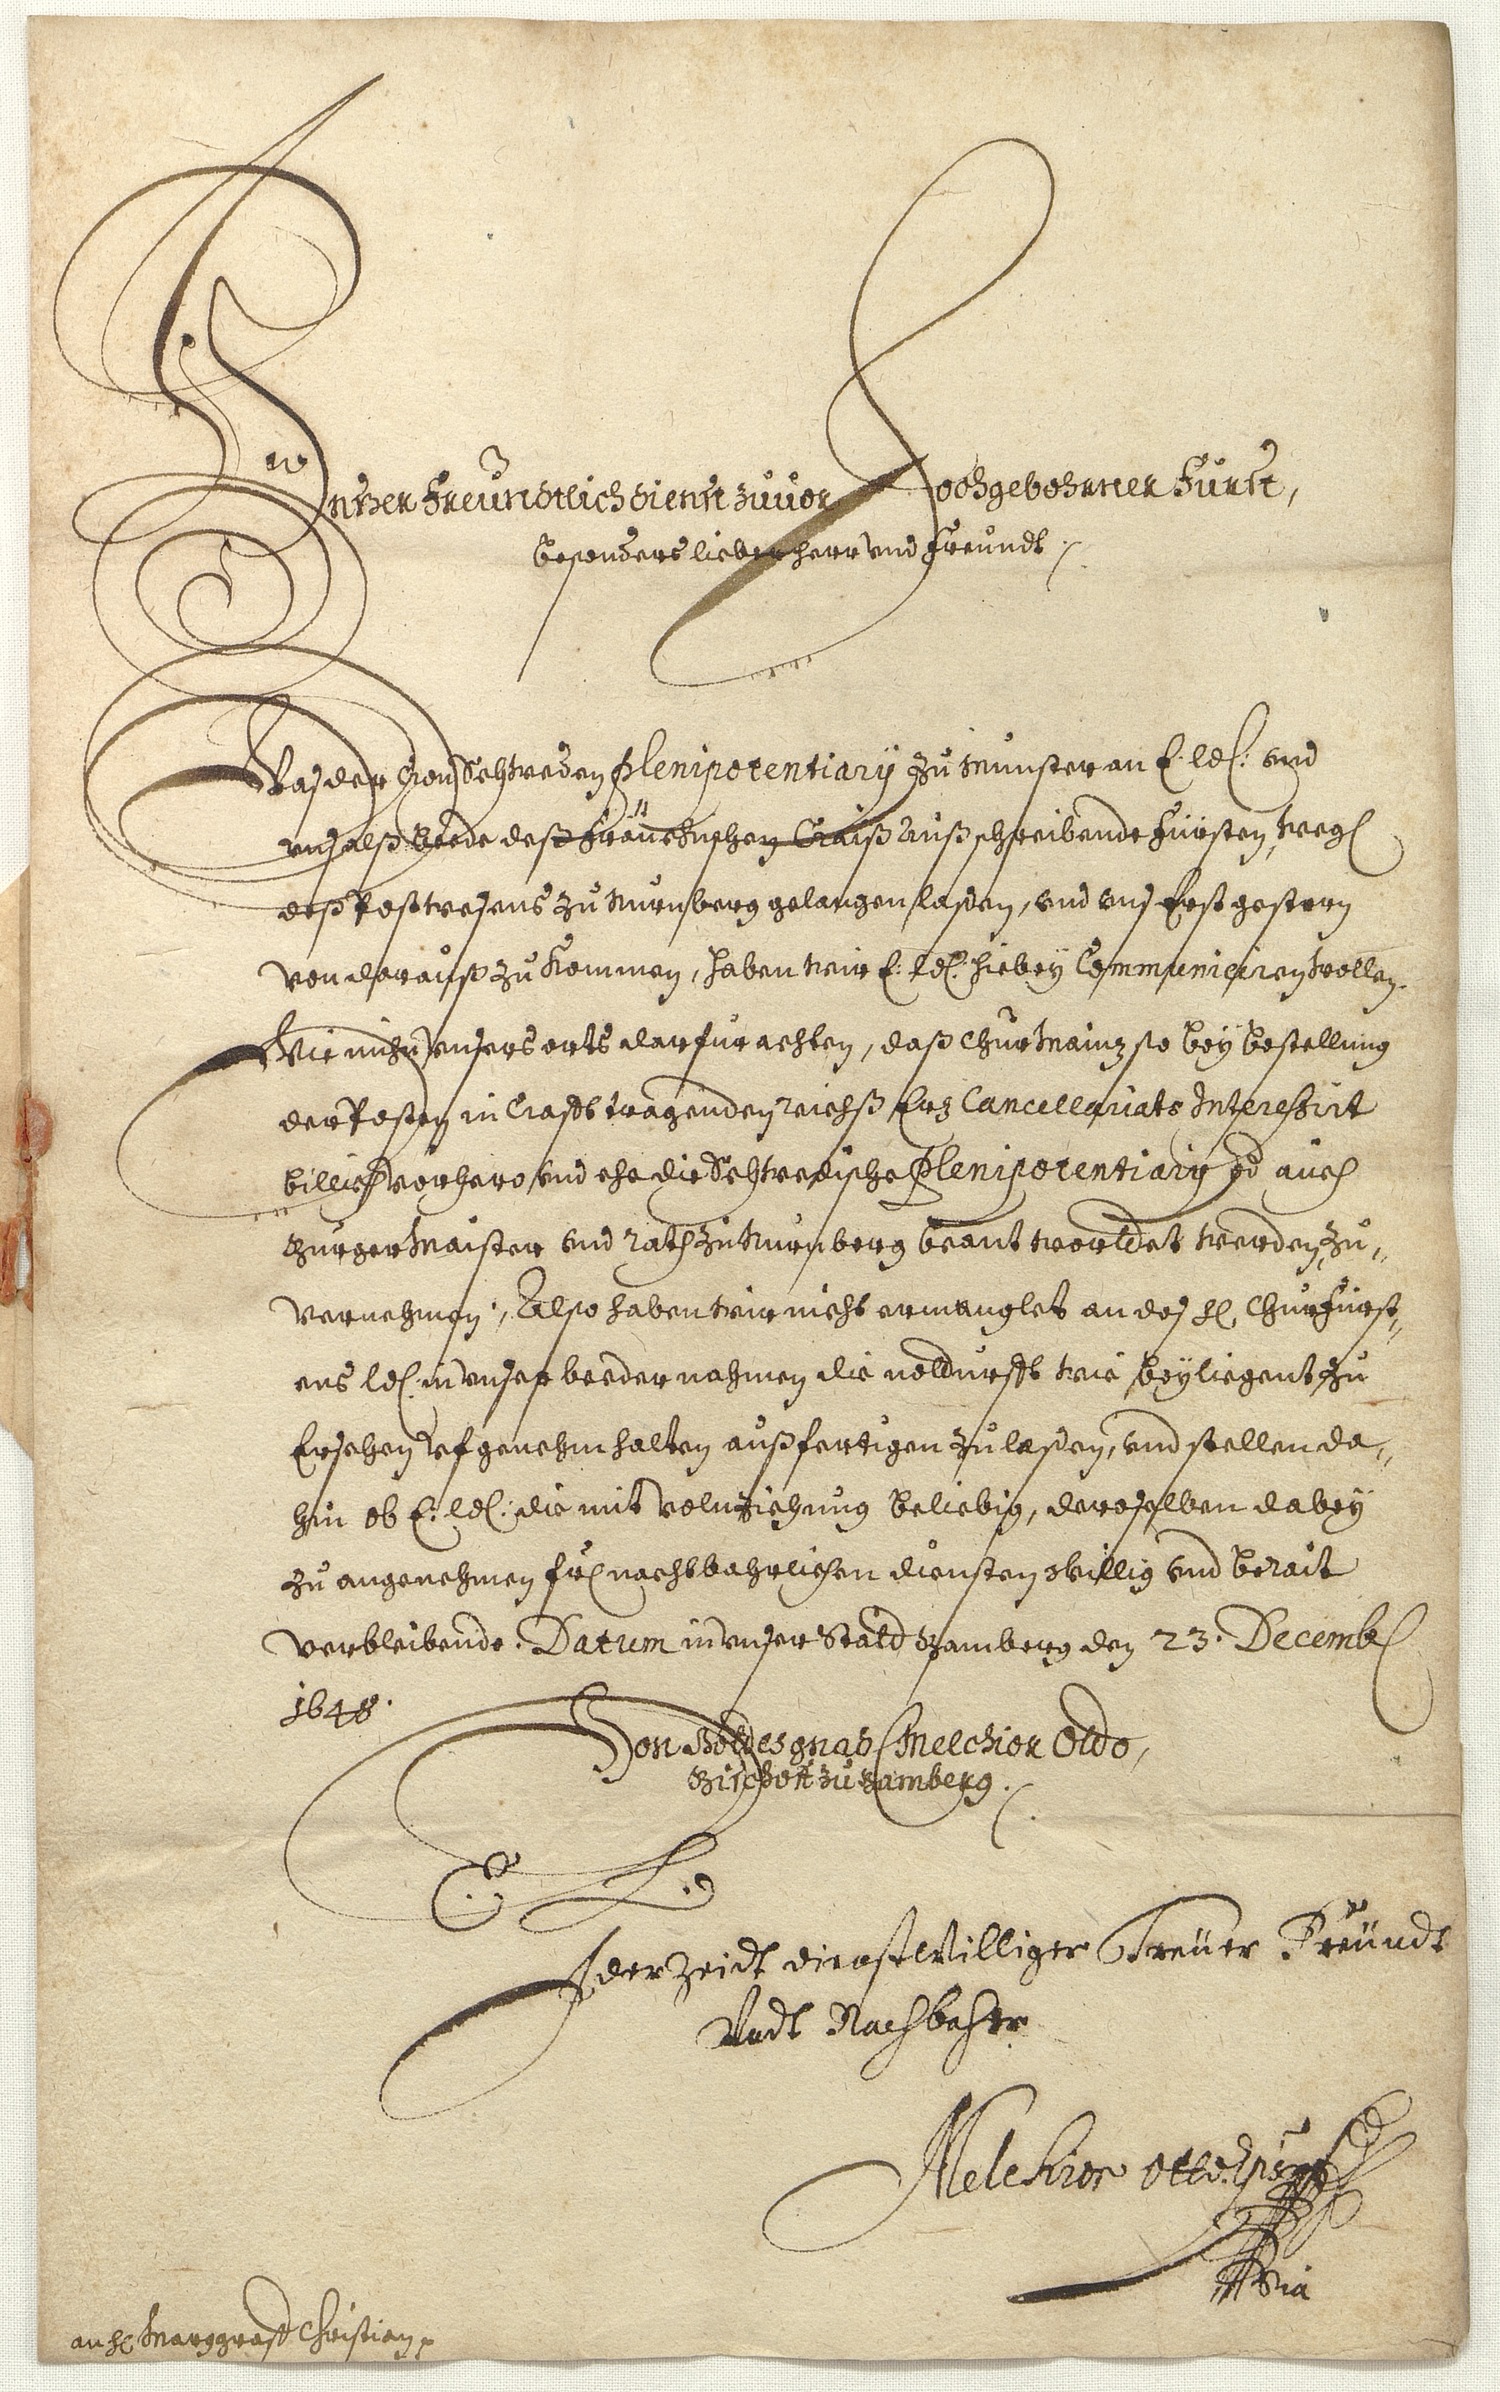 Unser Freundtlich dienst zuuor Hochgebohrner Fürst,
besonders lieber herr vnd Freundt.
Was der Cron Schweden Plenipotentiarÿ zu Münster an E. Ld: vnd
vnß alß beede deß Fränckischen Craiß Außschreibende Fürsten, weg
deß Postwesens zu Nürnberg gelangen laßen, vnd vnß Erst gestern
von darauß zu kommen, haben wir E: Ld: hiebeÿ Communiciren wollen.
Wie nuhn vnsers orts darfur achten, daß Chur Mainz so beÿ bestellung
der Posten in Crafft tragenden reichß Erz Cancellariats Interessirt
billich vorhero vnd ehe die Schwedische Plenipotentiarÿ vnd auch
BurgerMaister vnd rath zu Nürnberg beantworttet werden, zu,,
vernehmen, Also haben wir nicht ermanglet an deß H. Churfürst,,
ens Ld: in vnser beeder nahmen die notdurfft wie beyliegent zu
Ersehen vf genehmhalten außfertigen zu laßen, vnd stellen da,,
hin ob E: Ld: die mit volnziehung beliebig, deroselben dabeÿ
zu angenehmen fr nachtbahrlichen diensten willig vnd berait
verbleibende. Datum in vnser Statd Bamberg den 23. Decemb
1648.
Von Gottes gnad Melchior Otto,
Bischoff zu Bamberg.
E. L.
Jderzeidt dienstwilliger Treüer Freündt
Vndt Nachbahr
Melchior Otto
mpia
an H. Marggraff Christian